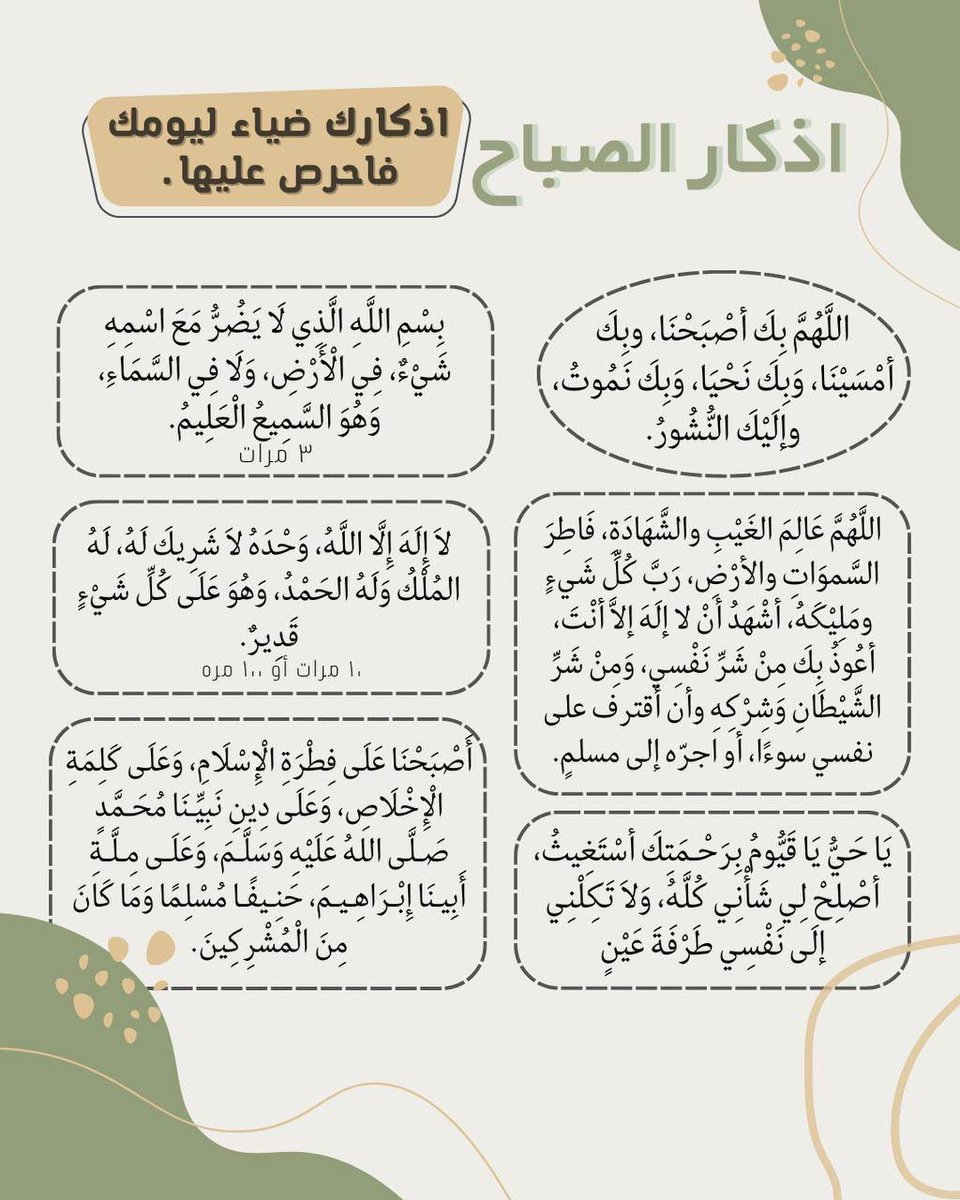 اذكار الصباح
اذكارك ضياء ليومك
فاحرص عليها.
اللَّهُمَّ بِكَ أصْبَحْنَا، وبِكَ
أمْسَيْنَا، وَبِكَ نَحْيَا، وَبِكَ نَمُوتُ،
وإلَيْكَ النُّشُورُ.
بِسْمِ اللَّهِ الَّذِي لَا يَضُرُّ مَعَ اسْمِهِ
شَيْءٌ، فِي الْأَرْضِ، وَلَا فِي السَّمَاءِ،
وَهُوَ السَّمِيعُ الْعَلِيمُ.
٣ مرات
اللَّهُمَّ عَالِمَ الغَيْبِ والشَّهَادَةِ، فَاطِرَ
السَّموَاتِ والأرْضِ، رَبَّ كُلِّ شَيءٍ
ومَلِيْكَهُ، أشْهَدُ أَنْ لا إلَهَ إلاَّ أنْتَ،
أعُوذُ بِكَ مِنْ شَرِّ نَفْسِي، وَمِنْ شَرِّ
الشَّيْطَانِ وَشِرْكِهِ وأن أقترف على
نفسي سوءًا، أو اجرّه إلى مسلمٍ.
لاَ إِلَهَ إِلَّا اللَّهُ، وَحْدَهُ لاَ شَرِيكَ لَهُ، لَهُ
المُلْكُ وَلَهُ الحَمْدُ، وَهُوَ عَلَى كُلِّ شَيْءٍ
قَدِيرٌ.
١٠ مرات أو ١٠٠ مره
يَا حَيُّ يَا قَيُّومُ بِرَحْـمَتِكَ أسْتَغِيثُ،
أصْلِحْ لِي شَأْنِي كُلَّهُ، وَلاَ تَكِلْنِي
إلَى نَفْسِي طَرْفَةَ عَيْنٍ
أَصْبَحْنَا عَلَى فِطْرَةِ الْإِسْلَامِ، وَعَلَى كَلِمَةِ
الْإِخْلَاصِ، وَعَلَى دِينِ نَبِيِّـنَا مُحَـمَّدٍ
صَـلَّى اللهُ عَلَيْهِ وَسَلَّـمَ، وَعَلَـى مِـلَّـةِ
أَبِيـنَا إِبْـرَاهِـيـمَ، حَنِـيفًـا مُسْـلِمًا وَمَا كَانَ
مِنَ الْمُشْرِكِينَ.